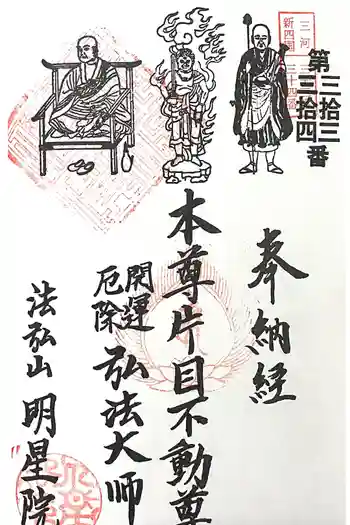 三河新四国
第三拾三
三拾四番
奉納経
本尊片目不動尊
開運
厄除
弘法大師
法弘山
明星院